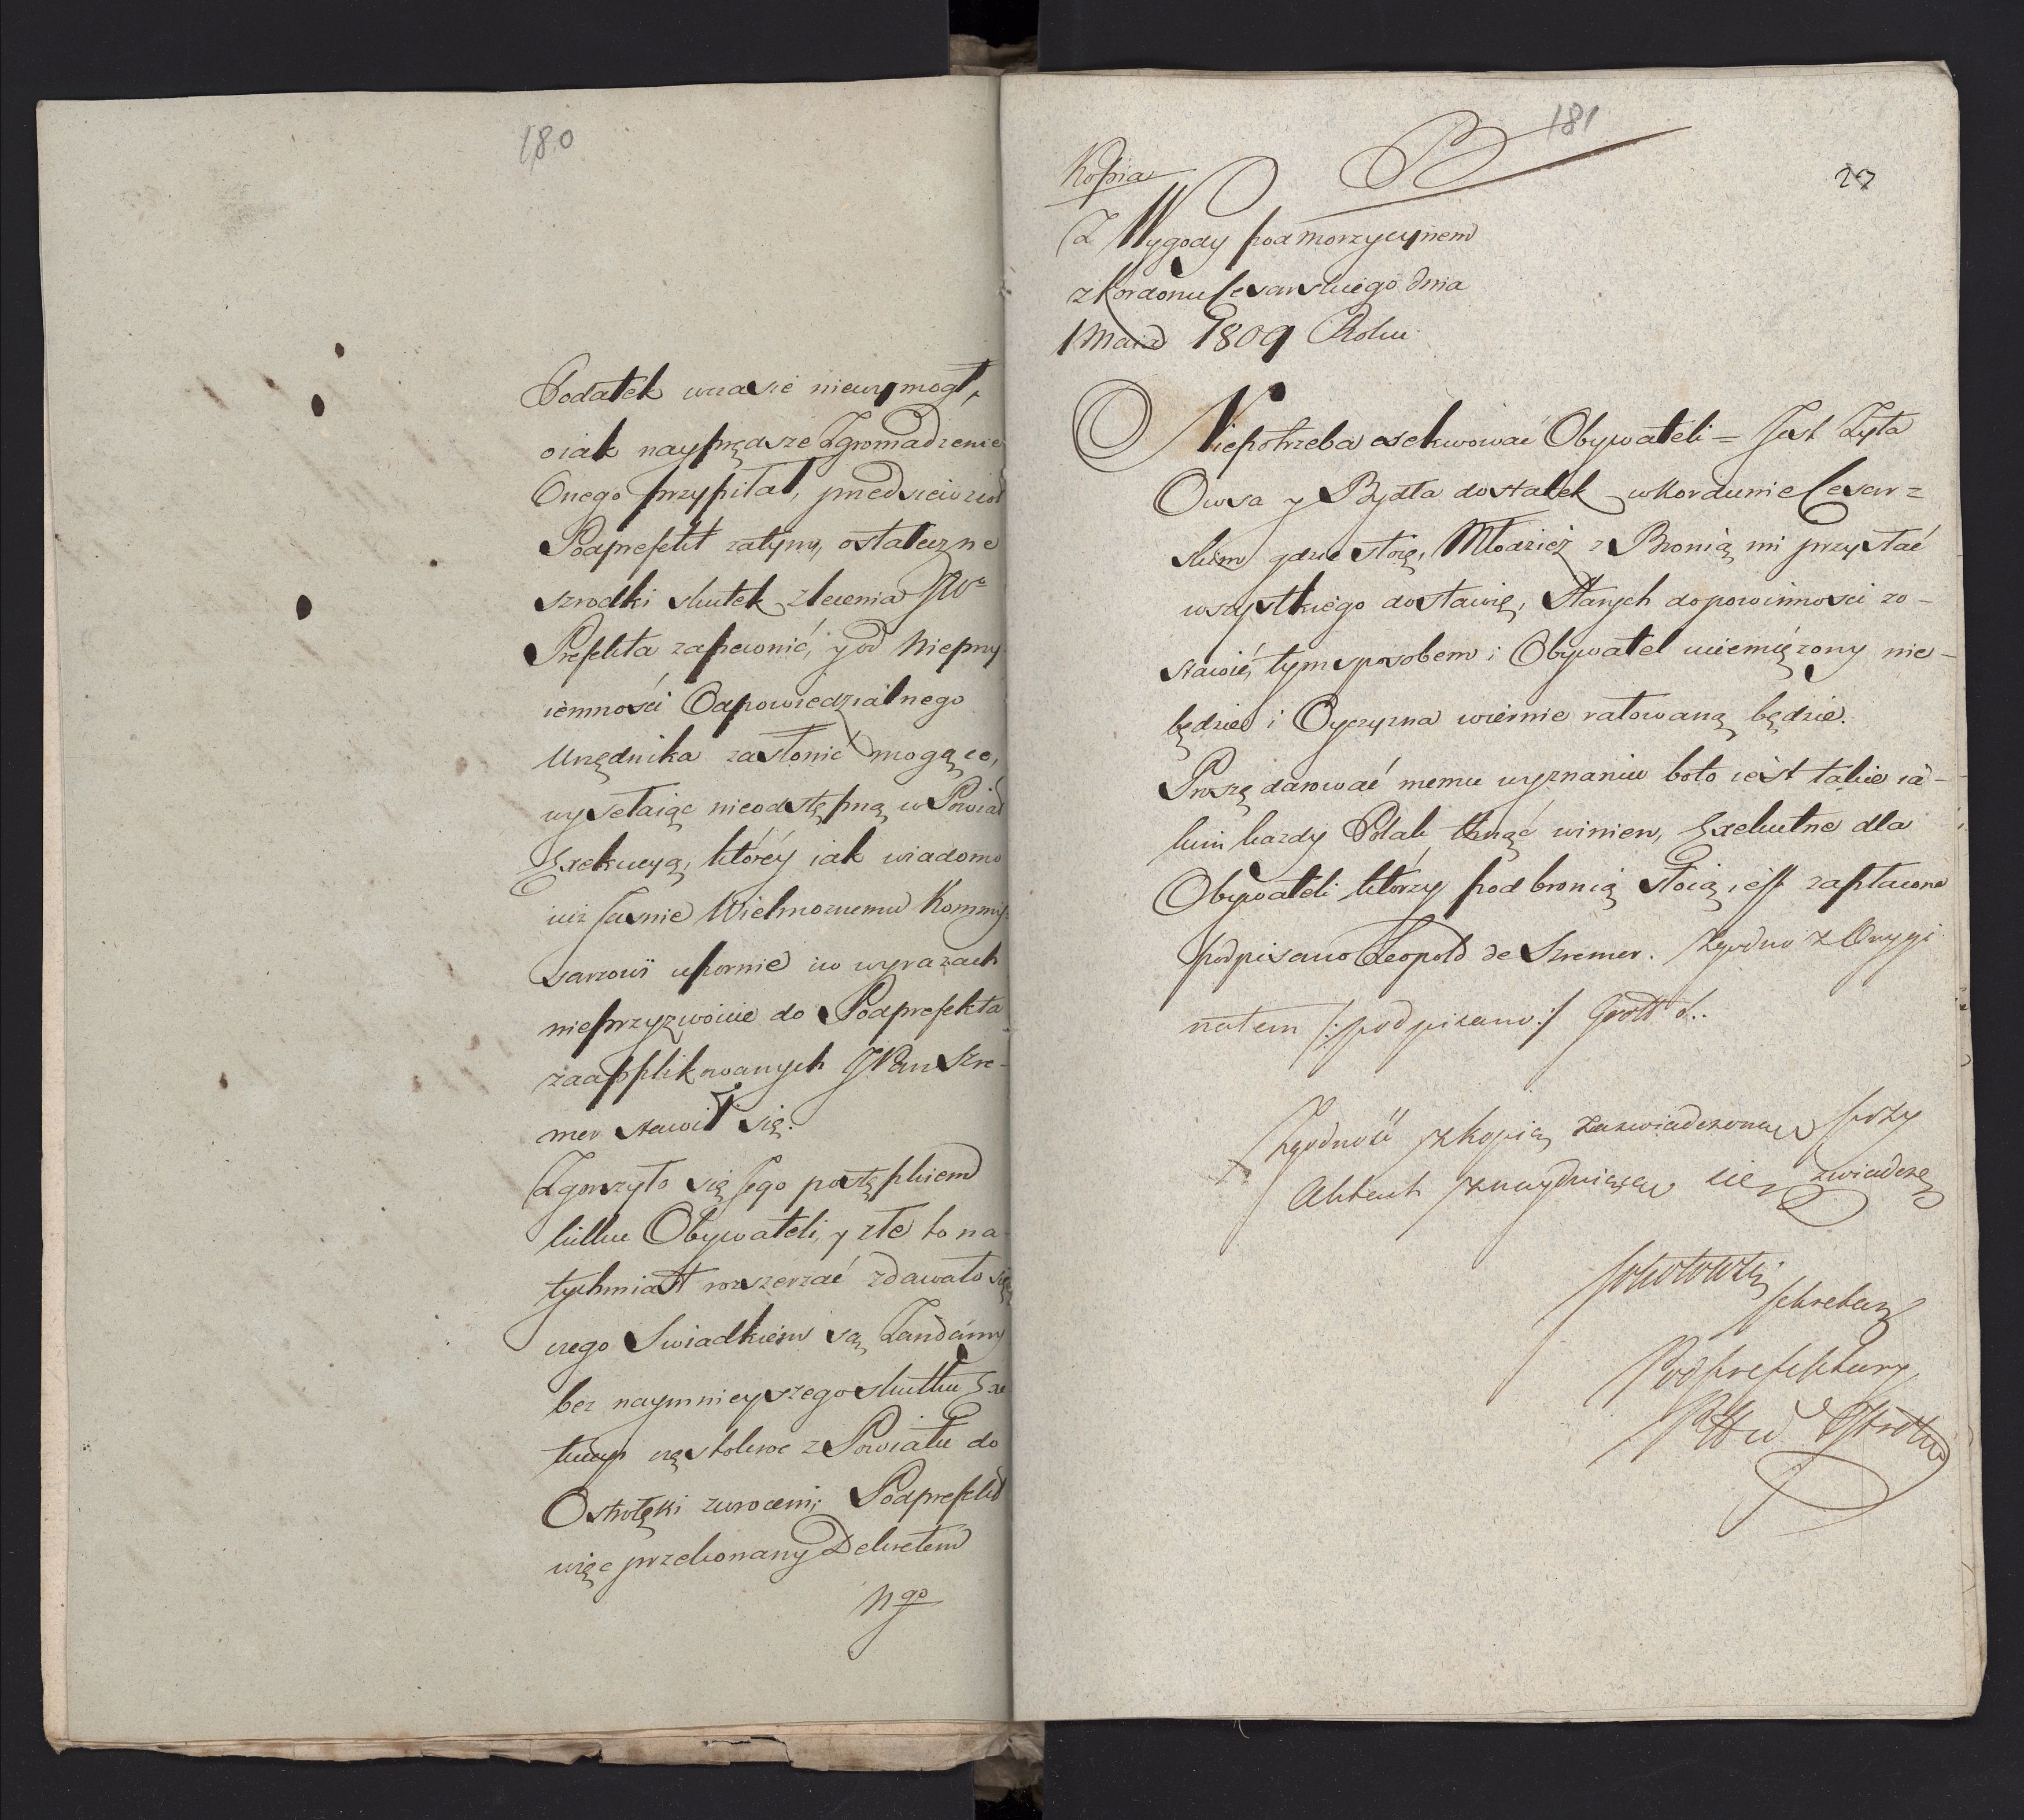 180
Podatek wcasie niewymogł,
oiak nayprędsze Zgromadzenie
Onego przypilał, przedsiewzioł
Podprefekt zatym, ostateczne
szrodki skutek zlecenia JWo
Prefekta zapewnić, y od Nieprzy
iemności Odpowiedzialnego
Urzędnika zasłonić mogące,
wysełaiąc nieodstępną w Powiat
Exekucyą, którey iak wiadomo
iuż Jasnie Wielmoznemu Kommis=
sarzowi upornie iw wyrazach
nieprzyzwoicie do Podprefekta
zaapplikowanych JPan Szre-
mer stawił się.
Zgorszyło się Jego postępkiem
kilku Obywateli, y złe to na
tychmiast rozszerzać zdawało się
czego Swiadkiem są Zandarmy
bez naymnieyszego skutku Exe
kucyi częstokroc z Powiatu do
Ostrołęki zwroceni; Podprefekt
więc przekonany Dekretem
Ngo
181
27
Kopia
B
Z Wygody pod morzyczynem
z Kordonu Cesarskiego dnia
1 Maia 1809 Roku
Niepotrzeba exekwować Obywateli = Jest Zyta
Owsa y Bydła dostatek w Kordunie Cesar=
skim gdzie stoię, Młodzież z Bronią mi przysłać
wszystkiego dostawię, Starych dopowinności zo-
stawić, tym sposobem i Obywatel uciemięzony nie-
będzie i Oyczyzna wiernie ratowaną będzie.
Proszę darować memu wyznaniu boto iest takie ia-
kim kazdy Polak tchnąć winien, Exekutne dla
Obywateli którzy pod bronią stoią iest zapłacone
podpisano Leopold de Szremer. Zgodno z Orygi
nałem /: podpisano :/ Grott S..
Zgodność z kopią zaswiadczoną przy
Aktach znayduiącą się zwiadczę
Sokołowski
Sekretarz
Podprefektury
Pttu Ostrołę